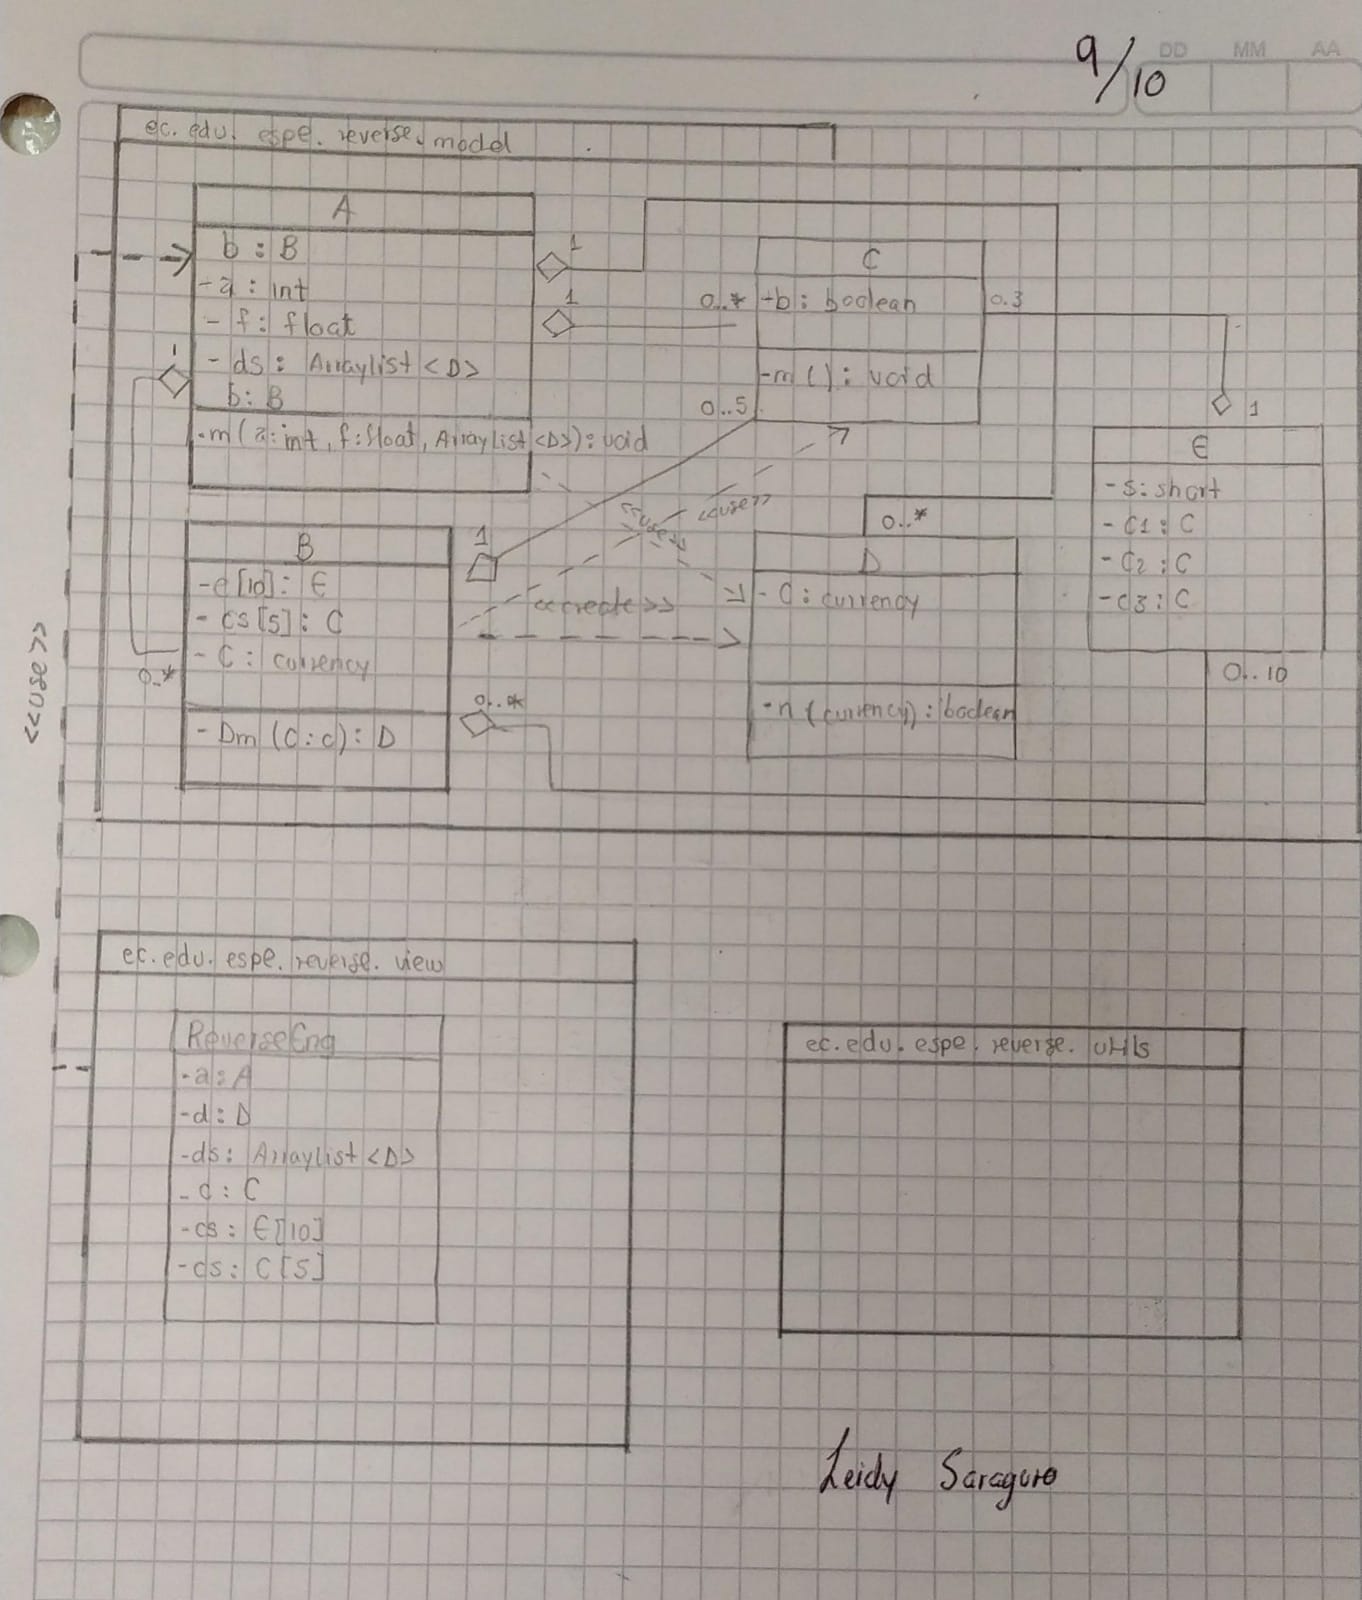 9/10
DD MM AA
ec.edu.espe.reverse.model
A
b : B
-a : int
- f : float
- ds : Arraylist <D>
b : B
-m(a:int, f:float, Arraylist<D>):void
1
1
1
0..*
C
+b: boolean
-m(): void
0..*
0..5
0.3
1
E
-s: short
- C1 : C
- C2 : C
-c3 : C
0..10
B
-e[10]: E
- cs[5]: C
- C : currency
- Dm (C:c): D
1
0..*
<<use>>
<<use>>
<<create>>
0..*
D
- C: currency
-n (currency): boolean
<<use>>
ec.edu.espe.reverse.view
ReverseEng
-a : A
-d : D
-ds: Arraylist <D>
- c : C
-cs : E[10]
-cs : C[5]
ec.edu.espe.reverse.utils
Leidy Saraguro